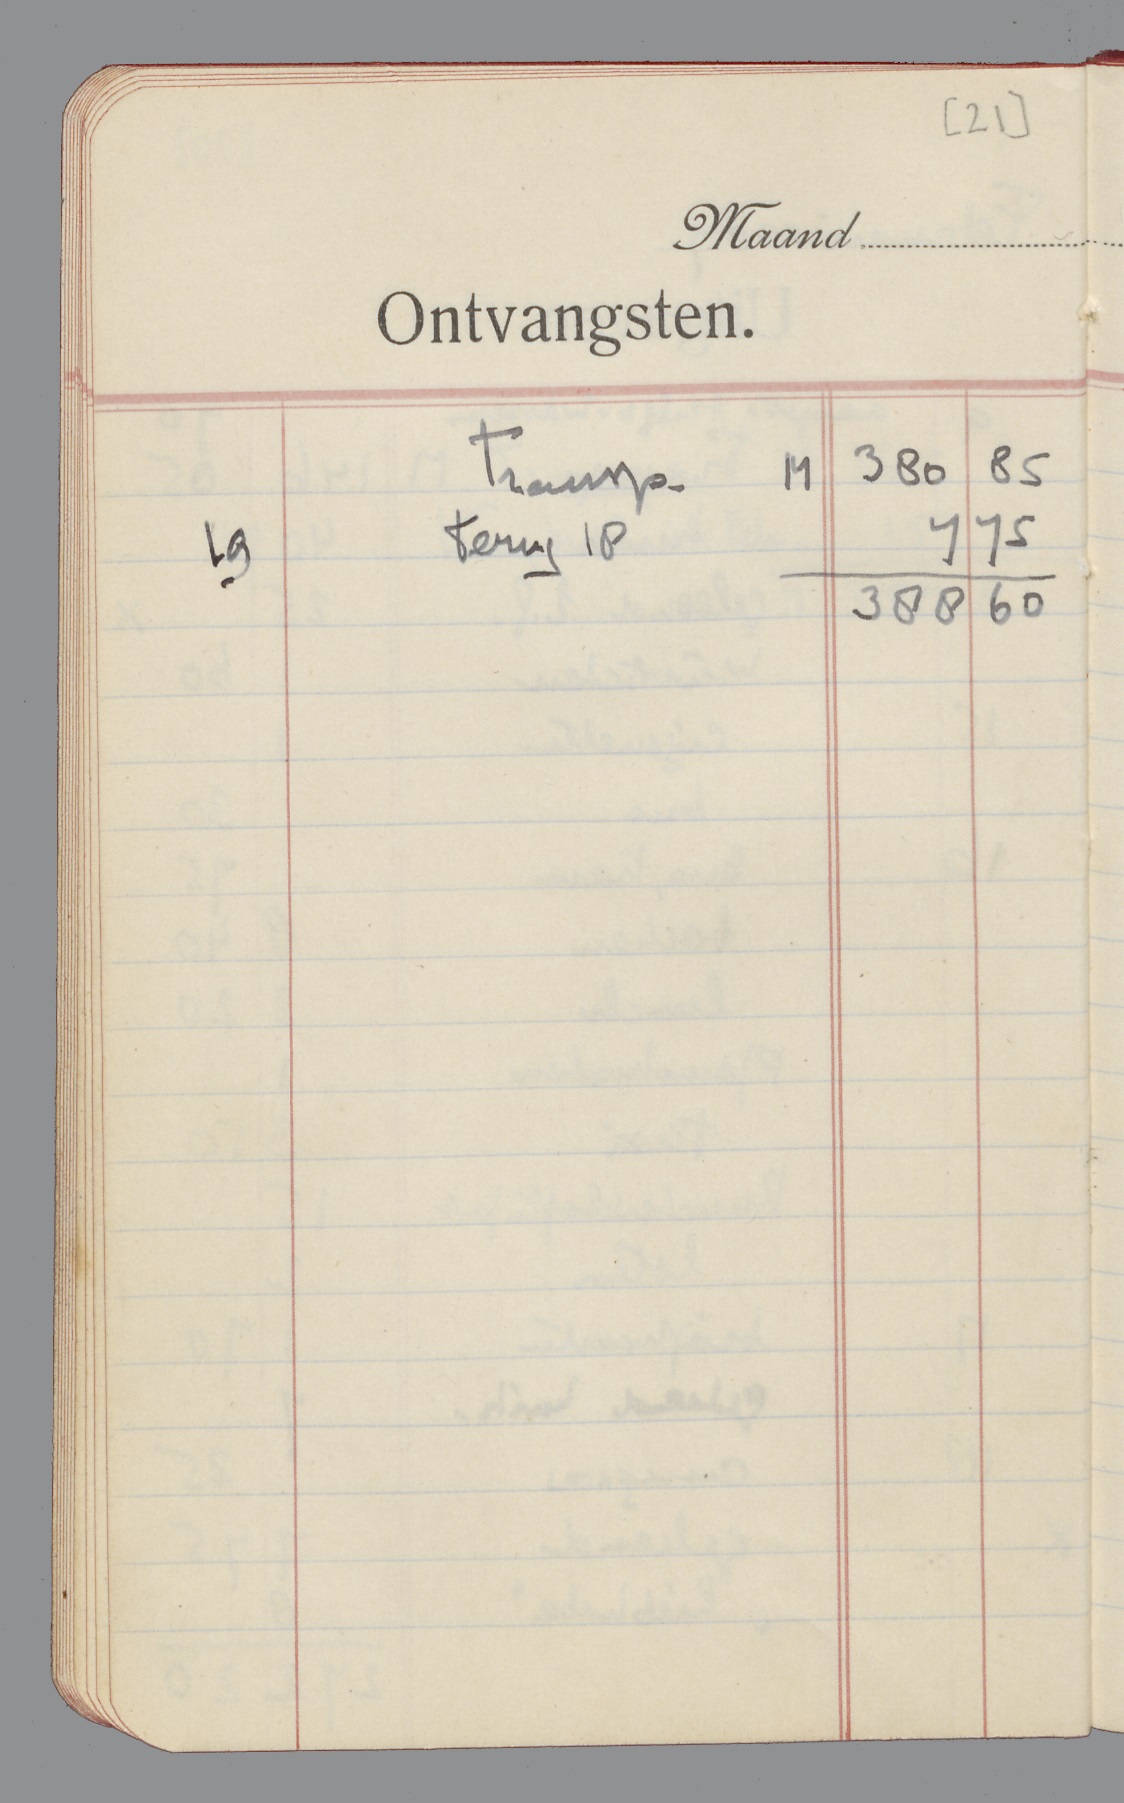 [21]
Maand
Ontvangsten.
Transp. M 380 85
19 terug 18 7 75
388 60